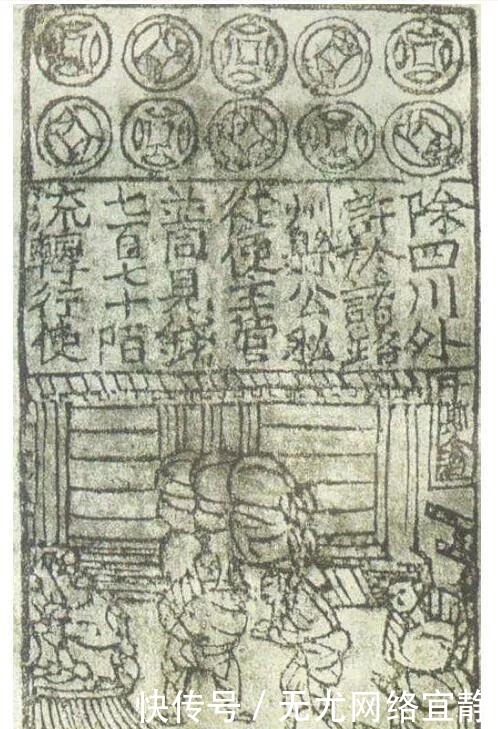 除四川外
許於諸路
州縣公私
從便主管
並同見錢
七百七十陌
流轉行使
快传号 / 无尤网络宜静